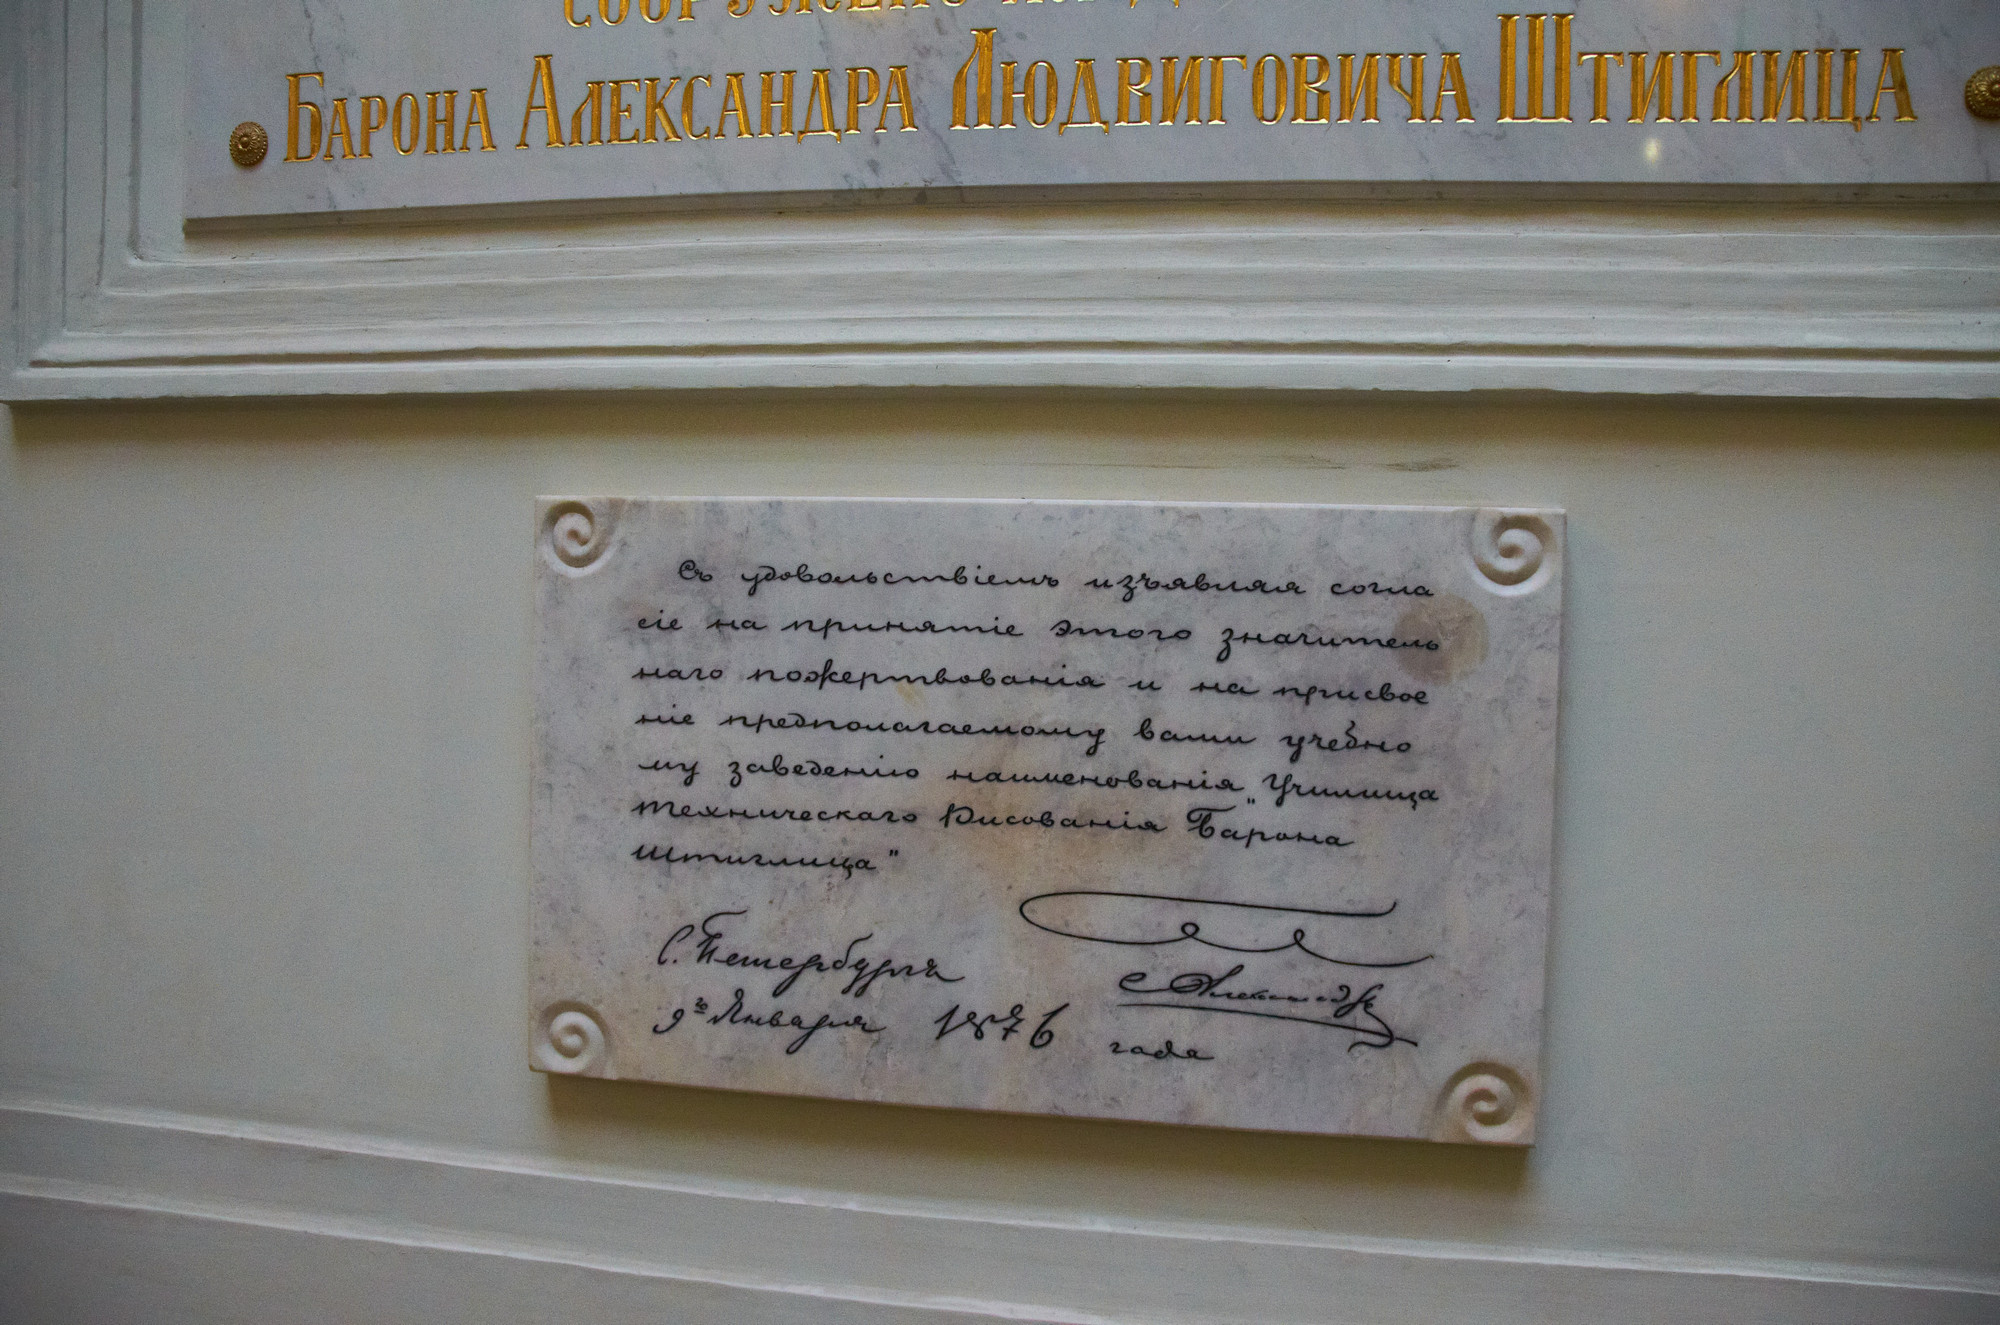 Барона Александра Людвиговича Штиглица
Съ удовольствіемъ изъявляя согла
сіе на принятіе этого значитель
наго пожертвованія и на присвое
ніе предполагаемому вами учебно
му заведенію наименованія „Училища
техническаго Рисованія Барона
Штиглица"
С. Петербургъ
9го Января 1876 года
Александръ